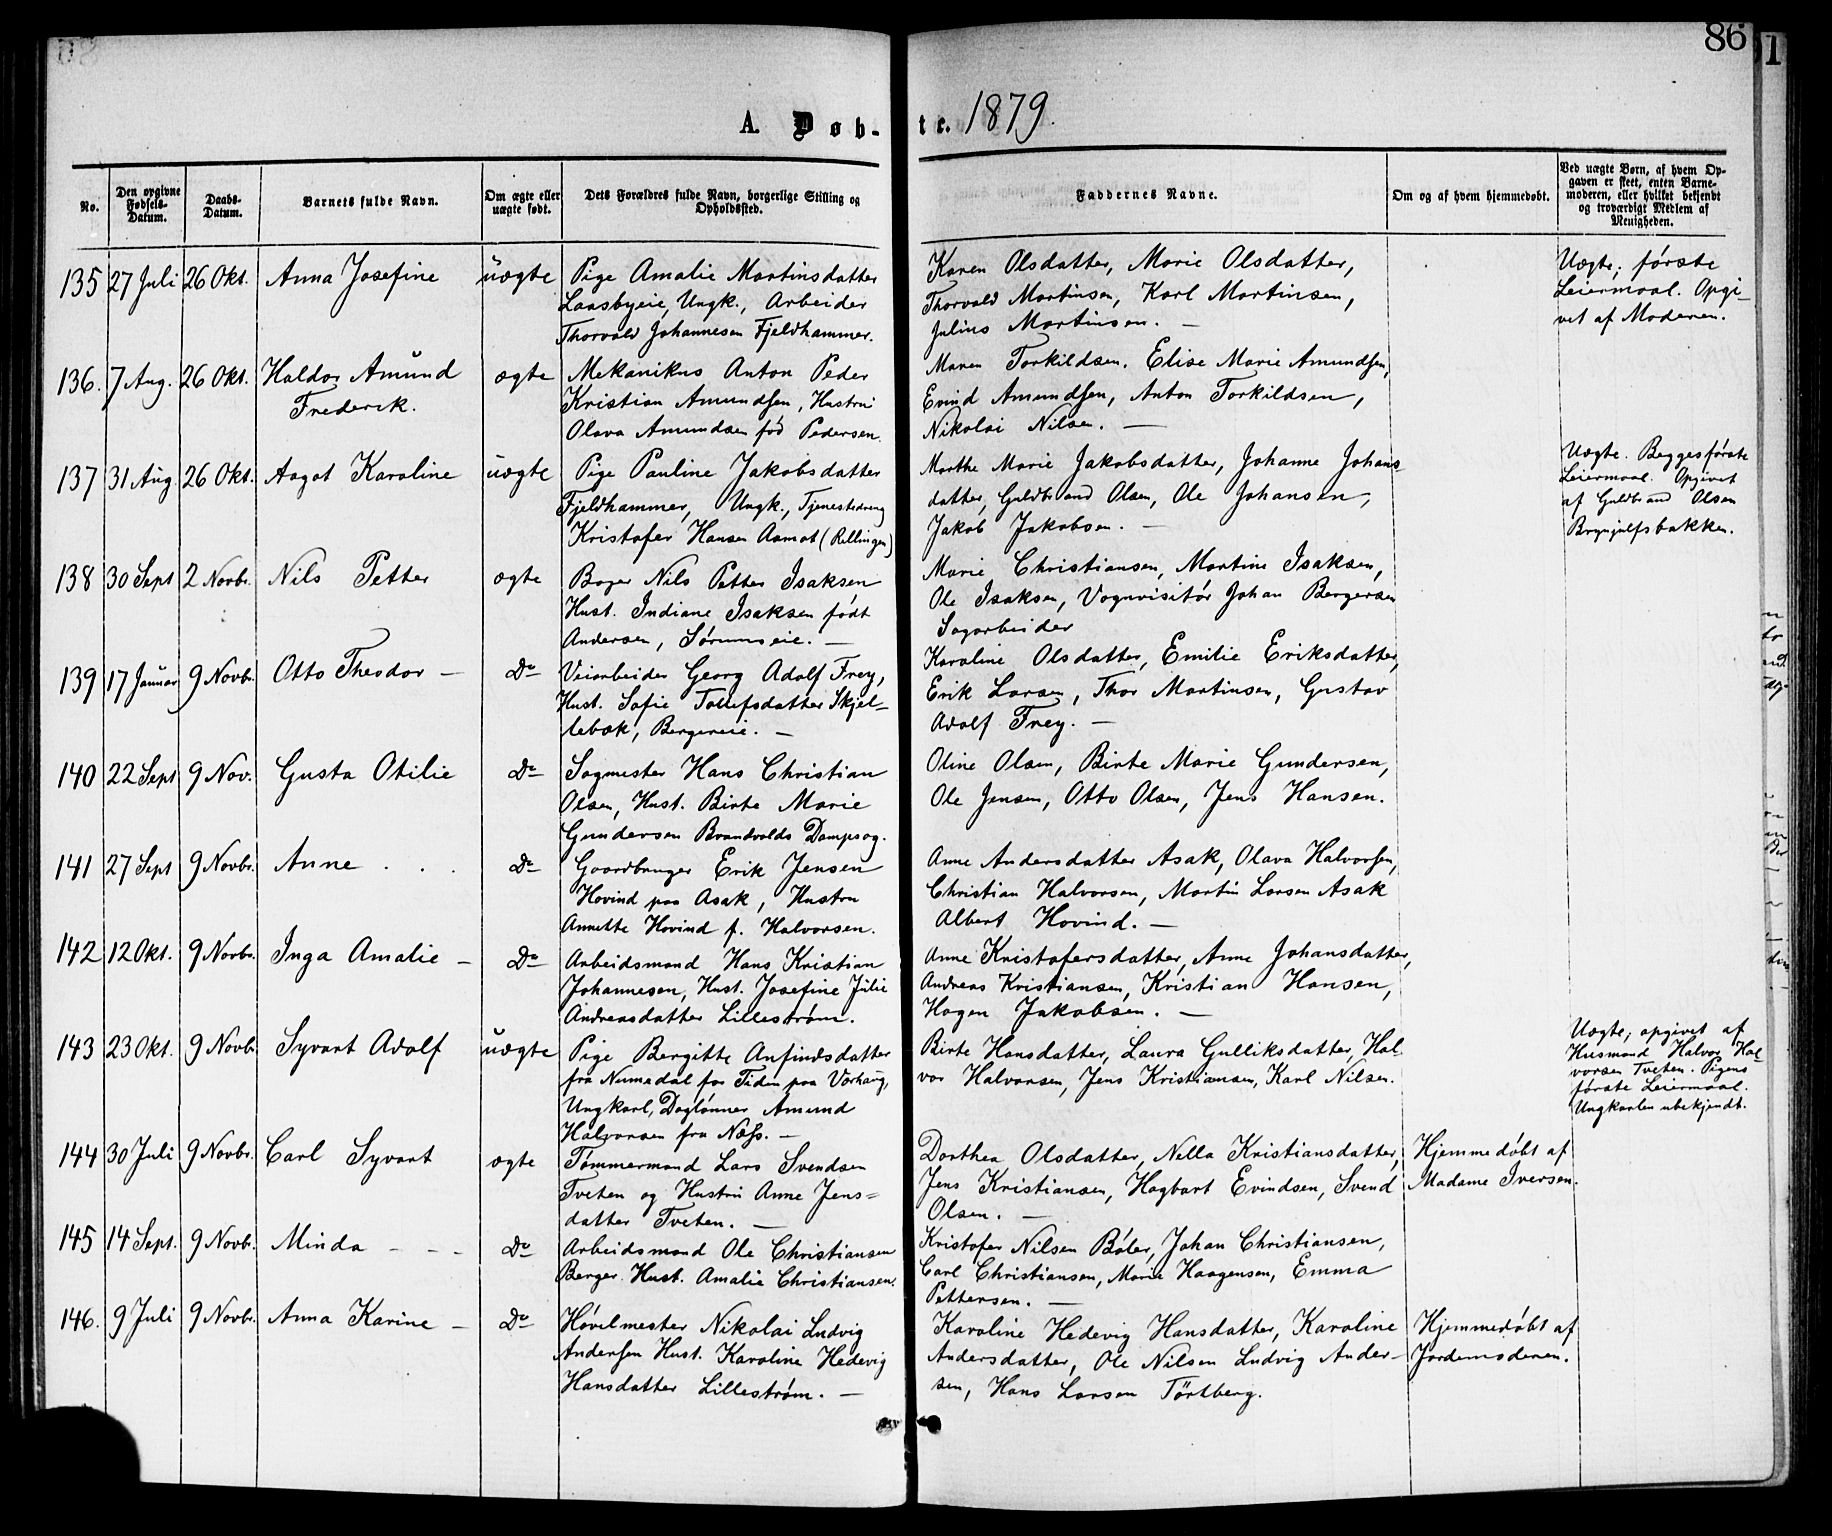 86
A. Døb- te. 1879.
No.
Den opgivne Fødsels-Datum.
Daabs-Datum.
Barnets fulde Navn.
Om ægte eller uægte født.
Dets Forældres fulde Navn, borgerlige Stilling og Opholdssted.
Faddernes Navne.
Om og af hvem hjemmedøbt.
Ved uægte Børn, af hvem Op-
gaven er skeet, enten Barne-
moderen, eller hvilket bekjendt
og troværdigt Medlem af
Menigheden.
135 27 Juli 26 Okt. Anna Josefine uægte
Pige Amalie Martinsdatter
Laasbyeie, Ungk., Arbeider
Thorvald Johannesen Fjeldhammer.
Karen Olsdatter, Marie Olsdatter,
Thorvald Martinsen, Karl Martinsen,
Julius Martinsen. —
Uægte; første
Leiermaal. Opgi-
vet af Moderen.
136. 7 Aug. 26 Okt. Haldor Amund ægte
Frederik.
Mekanikus Anton Peder
Kristian Amundsen, Hustru
Olava Amundsen fød Pedersen.
Maren Torkildsen. Elise Marie Amundsen,
Evind Amundsen, Anton Torkildsen,
Nikolai Nilsen. —
137 31 Aug. 26 Okt. Aagot Karoline uægte
Pige Pauline Jakobsdatter
Fjeldhammer, Ungk., Tjenestedreng
Kristofer Hansen Aamot (Rellingen)
Marthe Marie Jakobsdatter, Johanne Johans-
datter, Guldbrand Olsen, Ole Johansen,
Jakob Jakobsen. —
Uægte. Begges første
Leiermaal. Opgivet
af Guldbrand Olsen
Brynjulfsbakken.
138 30 Sept 2 Novbr. Nils Petter ægte
Bager Nils Petter Isaksen
Hust. Indiane Isaksen født
Andersen, Sørumseie. —
Marie Christiansen, Martine Isaksen,
Ole Isaksen, Vognvisitør Johan Bergersen
Sagarbeider
139 17 Januar 9 Novbr. Otto Theodor — Do
Veiarbeider Georg Adolf Frey,
Hust. Sofie Tollefsdatter Skjel-
lebæk, Bergereie. —
Karoline Olsdatter, Emilie Eriksdatter,
Erik Larsen, Thor Martinsen, Gustav
Adolf Frey. —
140 22 Sept 9 Nov. Gusta Otilie Do
Sagmester Hans Christian
Olsen, Hust. Birte Marie
Gundersen Brandvolds Dampsag.
Oline Olsen, Birte Marie Gundersen,
Ole Jensen, Otto Olsen, Jens Hansen.
141 27 Sept 9 Novbr. Anne . . . Do
Gaardbruger Erik Jensen
Hovind paa Asak, Hustru
Annette Hovind f. Halvorsen.
Anne Andersdatter Asak, Olava Halvorsen,
Christian Halvorsen, Martin Larsen Asak
Albert Hovind. —
142 12 Okt. 9 Novbr. Inga Amalie — Do
Arbeidsmand Hans Kristian
Johannesen, Hust. Josefine Julie
Andreasdatter Lillestrøm.
Anne Kristofersdatter, Anne Johansdatter,
Andreas Kristiansen, Kristian Hansen,
Hagen Jakobsen. —
143 23 Okt. 9 Novbr Syvart Adolf uægte
Pige Bergitte Anfindsdatter
fra Numedal for Tiden paa Vorhaug,
Ungkarl, Daglønner Amund
Halvorsen fra Næss. —
Birte Hansdatter, Laura Gulliksdatter, Hal-
vor Halvorsen, Jens Kristiansen, Karl Nilsen.
Uægte; opgivet af
Husmand Halvor Hal-
vorsen Tveten. Pigens
første Leiermaal.
Ungkarlen ubekjendt.
144 30 Juli 9 Novbr. Carl Syvart ægte
Tømmermand Lars Svendsen
Tveten og Hustru Anne Jens-
datter Tveten. —
Dorthea Olsdatter, Nella Kristiansdatter,
Jens Kristiansen, Hagbart Evindsen, Svend
Olsen. —
Hjemmedøbt af
Madame Iversen.
145 14 Sept. 9 Novbr. Minda - - - Do
Arbeidsmand Ole Christiansen
Berger. Hust. Amalie Christiansen.
Kristofer Nilsen Bøler, Johan Christiansen,
Carl Christiansen, Marie Haagensen, Emma
Pettersen. —
146. 9 Juli 9 Novbr. Anna Karine — Do
Høvelmester Nikolai Ludvig
Andersen Hust. Karoline Hedevig
Hansdatter Lillestrøm. —
Karoline Hedevig Hansdatter, Karoline
Andersdatter, Ole Nilsen Ludvig Ander-
sen, Hans Larsen Törtberg.
Hjemmedøbt af
Jordemoderen.